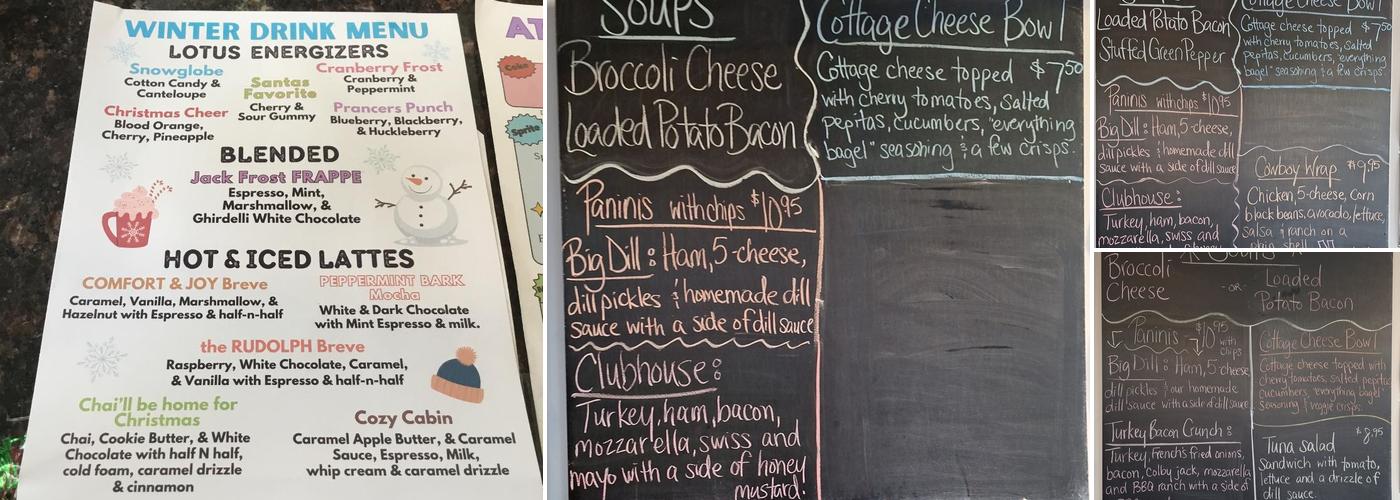 WINTER DRINK MENU
LOTUS ENERGIZERS
Snowglobe
Cotton Candy &
Canteloupe
Santas
Favorite
Cherry &
Sour Gummy
Cranberry Frost
Cranberry &
Peppermint
Christmas Cheer
Blood Orange,
Cherry, Pineapple
Prancers Punch
Blueberry, Blackberry,
& Huckleberry
BLENDED
Jack Frost FRAPPE
Espresso, Mint,
Marshmallow, &
Ghirdelli White Chocolate
HOT & ICED LATTES
COMFORT & JOY Breve
Caramel, Vanilla, Marshmallow, &
Hazelnut with Espresso & half-n-half
PEPPERMINT BARK
Mocha
White & Dark Chocolate
with Mint Espresso & milk.
the RUDOLPH Breve
Raspberry, White Chocolate, Caramel,
& Vanilla with Espresso & half-n-half
Chai'll be home for
Christmas
Chai, Cookie Butter, & White
Chocolate with half N half,
cold foam, caramel drizzle
& cinnamon
Cozy Cabin
Caramel Apple Butter, & Caramel
Sauce, Espresso, Milk,
whip cream & caramel drizzle
AT
Coke
Sprite
Soups
Broccoli Cheese
Loaded Potato Bacon
Paninis with chips $10.95
Big Dill: Ham, 5-cheese,
dill pickles & homemade dill
sauce with a side of dill sauce
Clubhouse:
Turkey, ham, bacon,
mozzarella, swiss and
mayo with a side of honey
mustard.
Cottage Cheese Bowl
Cottage cheese topped $7.50
with cherry tomatoes, salted
pepitas, cucumbers, "everything
bagel" seasoning & a few crisps.
Loaded Potato Bacon
Stuffed Green Pepper
Paninis with chips $10.95
Big Dill: Ham, 5-cheese,
dill pickles & homemade dill
sauce with a side of dill sauce
Clubhouse:
Turkey, ham, bacon,
mozzarella, swiss and
Cottage Cheese Bowl
Cottage cheese topped $7.50
with cherry tomatoes, salted
pepitas, cucumbers, "everything
bagel" seasoning & a few crisps.
Cowboy Wrap $9.95
Chicken, 5-cheese, corn
black beans, avocado, lettuce,
salsa & ranch on a
plain shell.
Soups
Broccoli
Cheese
-OR-
Loaded
Potato Bacon
Paninis $10.95
with
chips
Big Dill: Ham, 5-cheese,
dill pickles & our homemade
dill sauce with a side of dill sauce
Turkey Bacon Crunch:
Turkey, French's fried onions,
bacon, Colby jack, mozzarella
and BBQ ranch with a side of
Cottage Cheese Bowl
Cottage cheese topped with
cherry tomatoes, salted pepitas
cucumbers, everything bagel
seasoning & veggie crisps.
$8.95
Tuna Salad
Sandwich with tomato,
lettuce and a drizzle of
dill sauce.